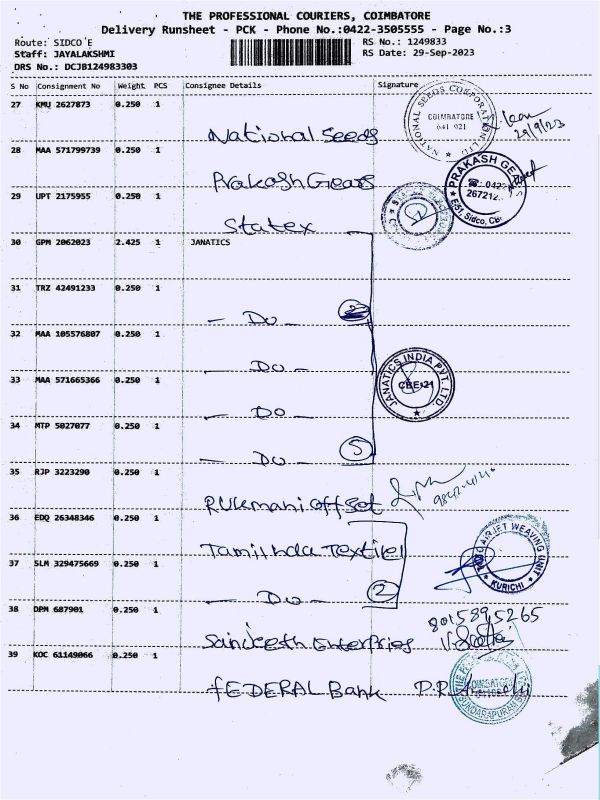 THE PROFESSIONAL COURIERS, COIMBATORE
Delivery Runsheet - PCK - Phone No.:0422-3505555 - Page No.:3
Route: SIDCO E RS No.: 1249833
Staff: JAYALAKSHMI RS Date: 29-Sep-2023
DRS No.: DCJB124983303
S No Consignment No Weight PCS Consignee Details Signature
27 KMU 2627873 0.250 1 National Seeds
NATIONAL SEEDS CORPORATION LTD. COIMBATORE 641 021
29/9/23
28 MAA 571799739 0.250 1 Prakash Gears
PRAKASH GEARS E/51, Sidco, Cbe
29 UPT 2175955 0.250 1 Statex
30 GPM 2062023 2.425 1 JANATICS
31 TRZ 42491233 0.250 1 - Do -
32 MAA 105576807 0.250 1 - Do -
33 MAA 571665366 0.250 1 - Do -
JANATICS INDIA PVT. LTD. CBE-21
34 MTP 5027077 0.250 1 - Do - 5
35 RJP 3223290 0.250 1 Rukmani offset
36 EDQ 26348346 0.250 1 Tamilnda Textiel
AIRJET WEAVING UNIT KURICHI
37 SLM 329475669 0.250 1 - Do - 2
38 DPM 687901 0.250 1 Enterpries
8015895265
39 KOC 61149066 0.250 1 FEDERAL Bank